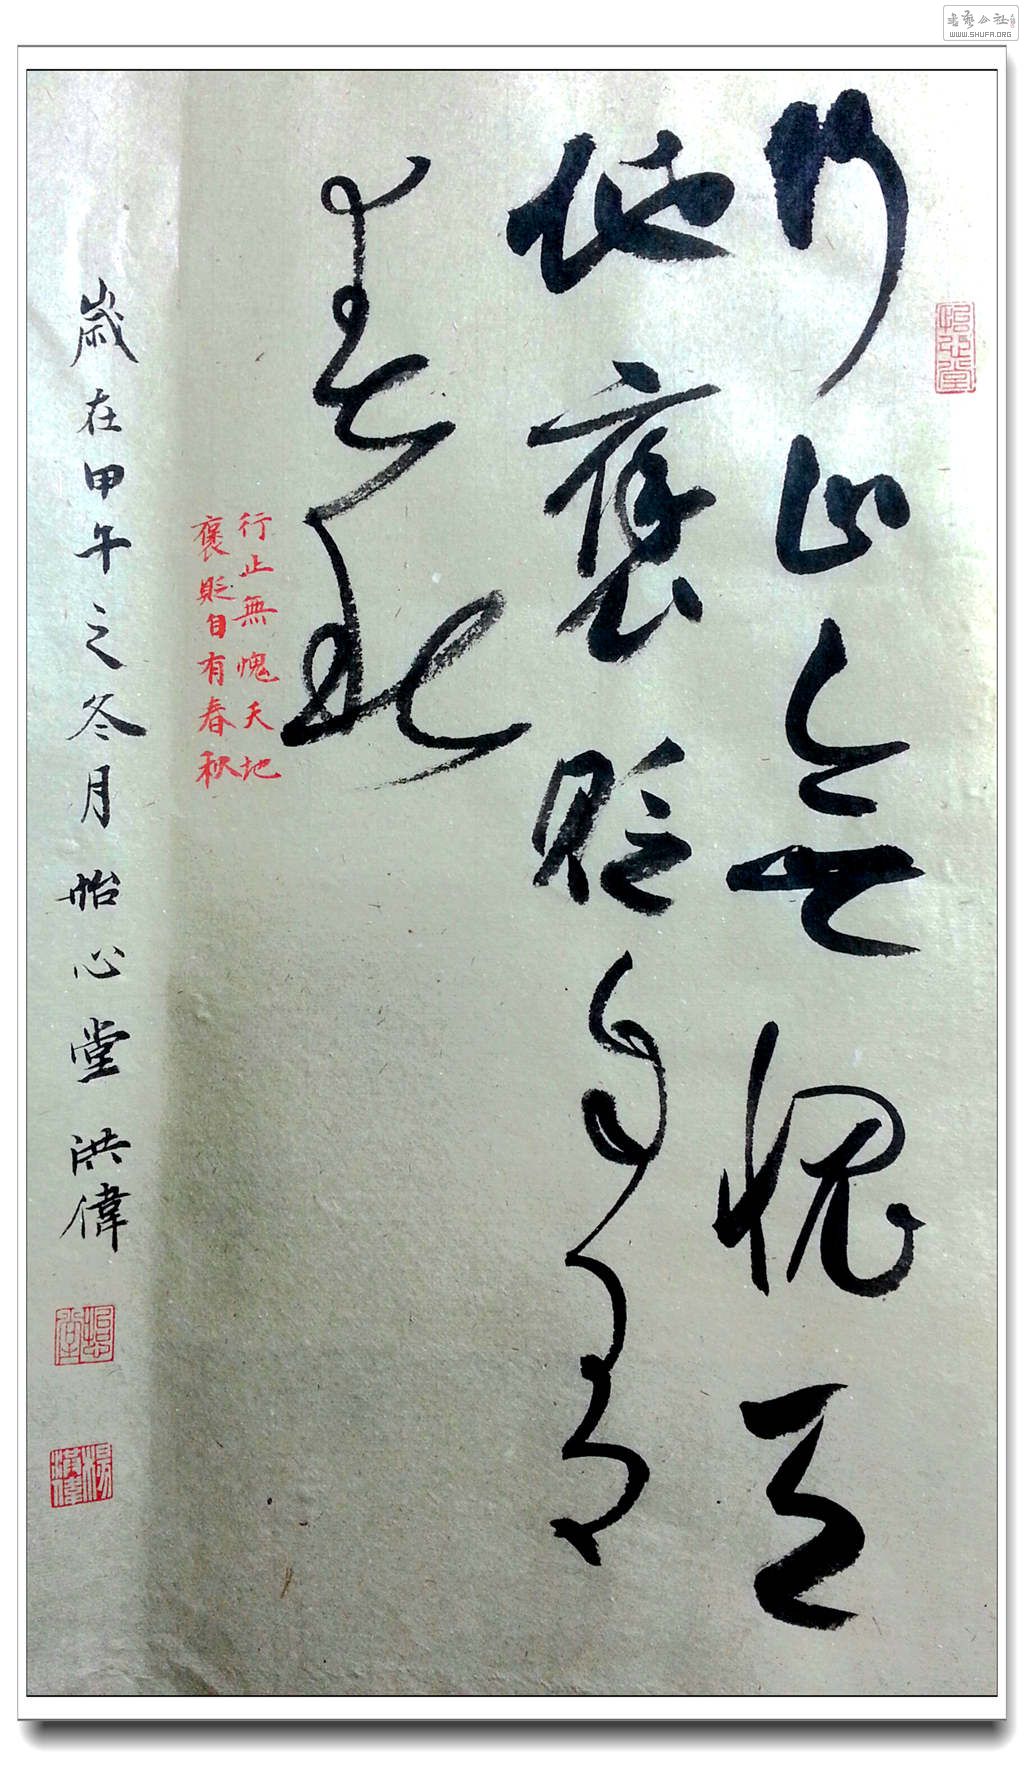 书艺公社
WWW.SHUFA.ORG
怡心堂
行止無愧天
地褒貶自有
春秋
行止無愧天地
褒貶自有春秋
歲在甲午之冬月怡心堂洪偉